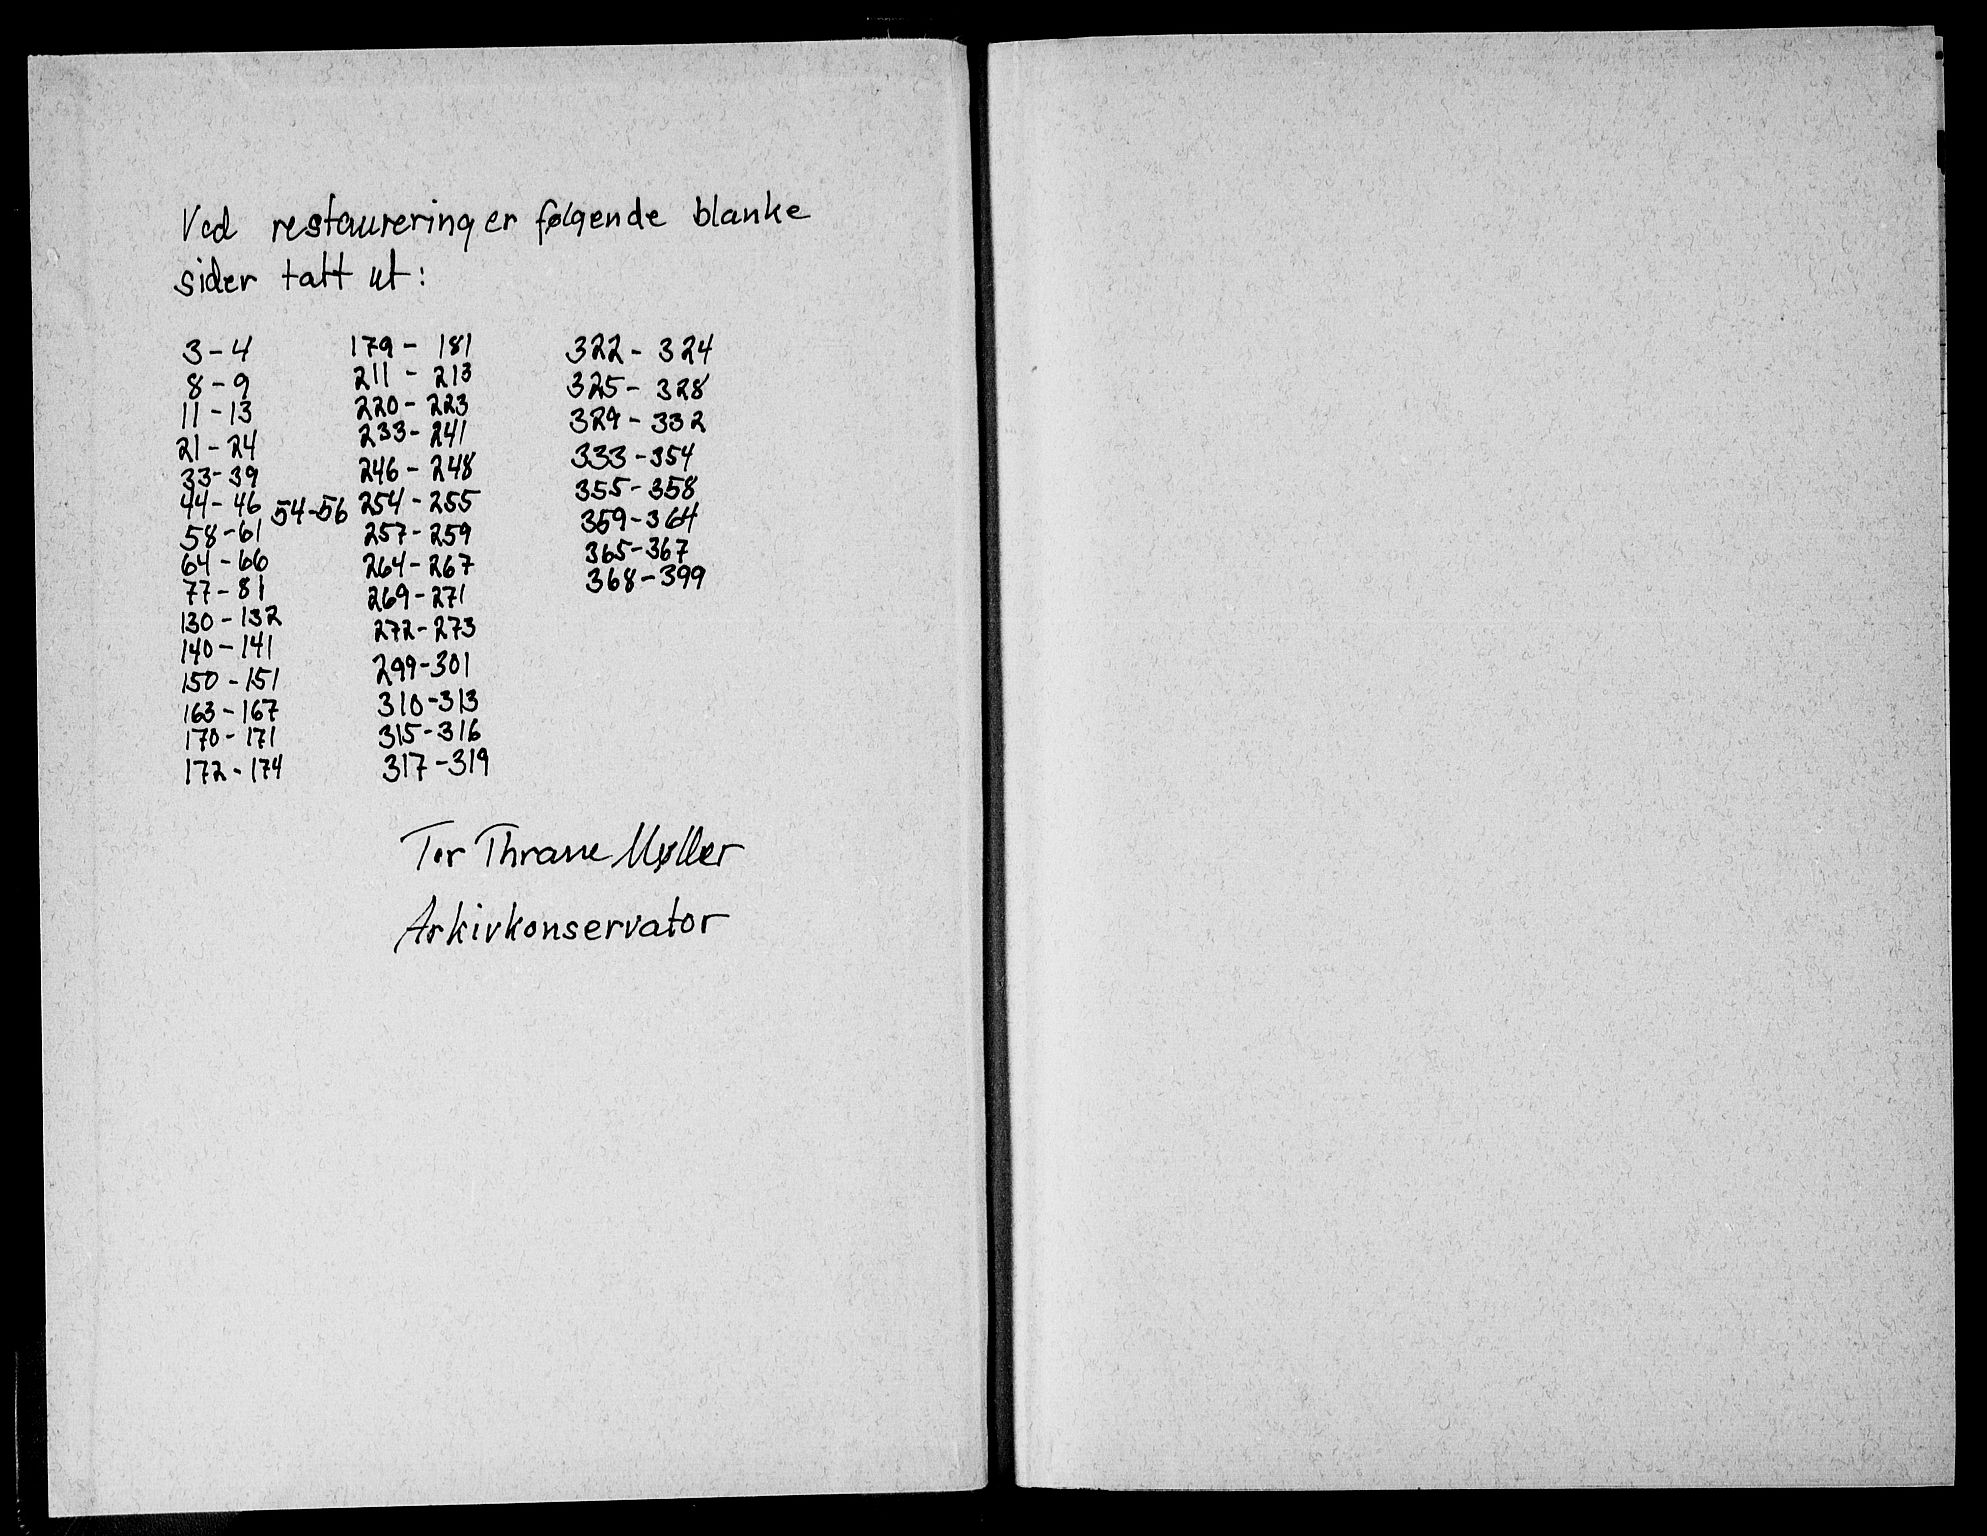 Ved restaurering er følgende blanke
sider tatt ut:
3-4
8-9
11-13
21-24
33-39
44-46 54-56
58-61
64-66
77-81
130-132
140-141
150-151
163-167
170-171
172-174
179-181
211-213
220-223
233-241
246-248
254-255
257-259
264-267
269-271
272-273
299-301
310-313
315-316
317-319
322-324
325-328
329-332
333-354
355-358
359-364
365-367
368-399
Tor Thrane Møller
Arkivkonservator